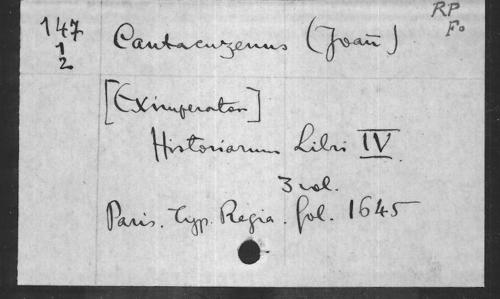 RP
Fo
147
1
2
Cantacuzenus (Joañ)
[Eximperator]
Historiarum Libri IV.
3 vol.
Paris. Typ. Regia. fol. 1645